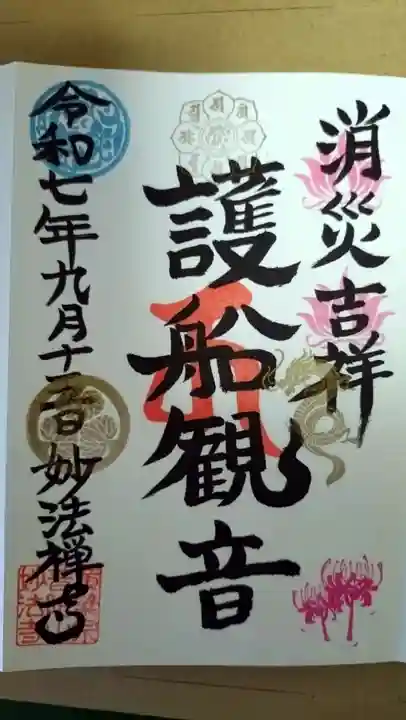 消災吉祥
護船観音
令和七年九月十二日 妙法禅寺